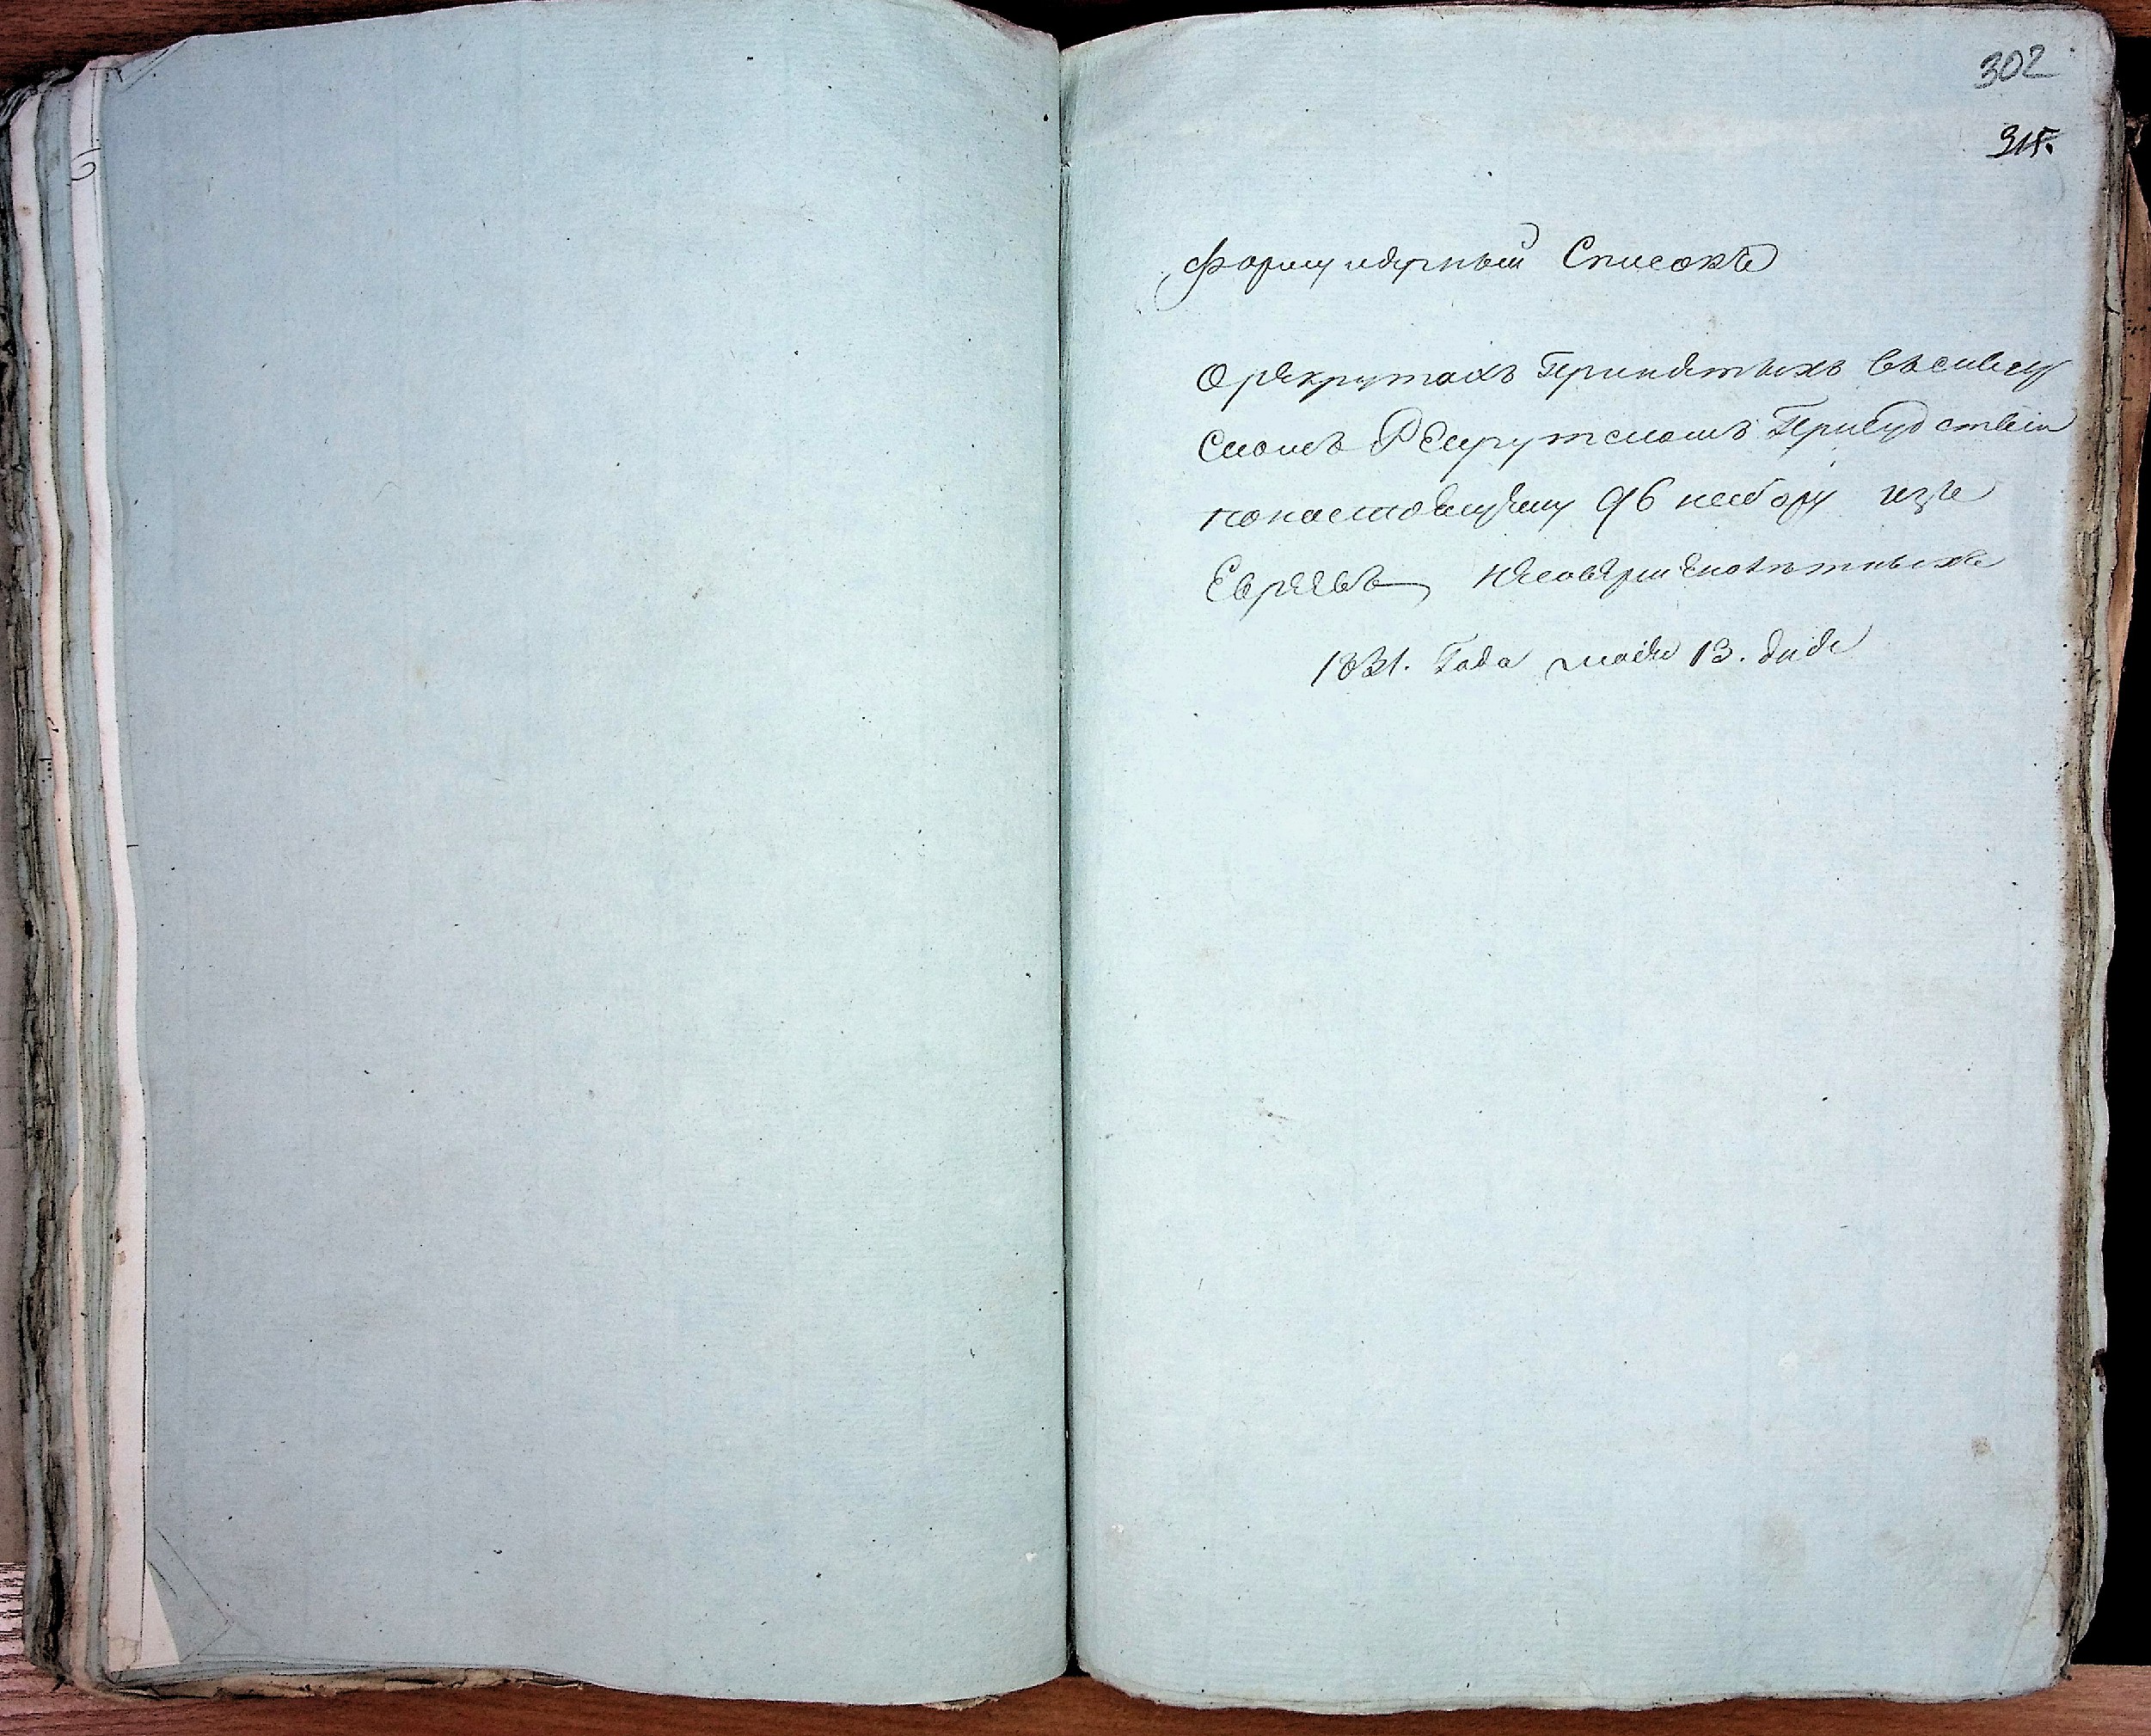 302
315.
Формулярный Списокъ
О рекрутахъ Принятыхъ
скомъ Рекрутскомъ Присудствіи
по настоящему 96 набору изъ
Евреевъ несовершеннолѣтныхъ
1831. Года маія 13. дня